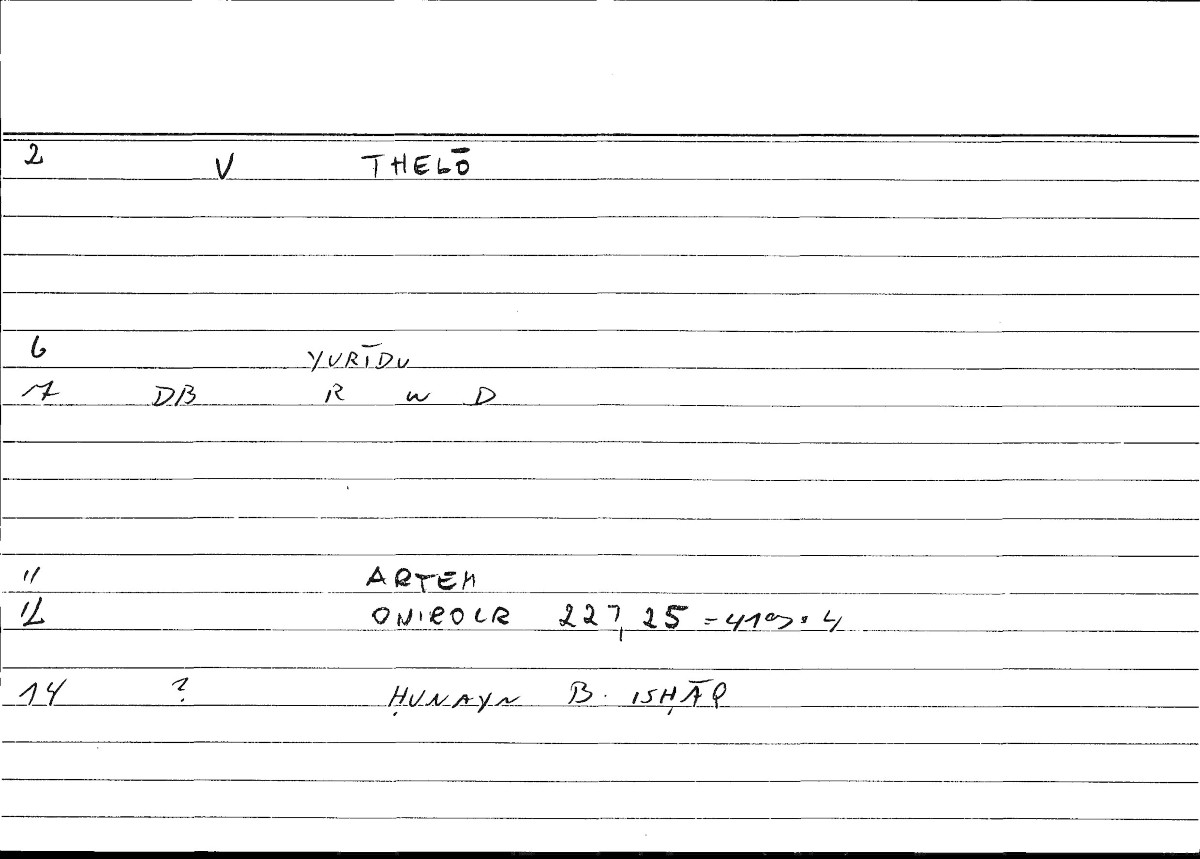 2 V THELŌ
6 YURĪDU
7 DB R W D
11 ARTEM
12 ONIROCR 227,25 =
14 ? ḤUNAYN B. ISḤĀQ